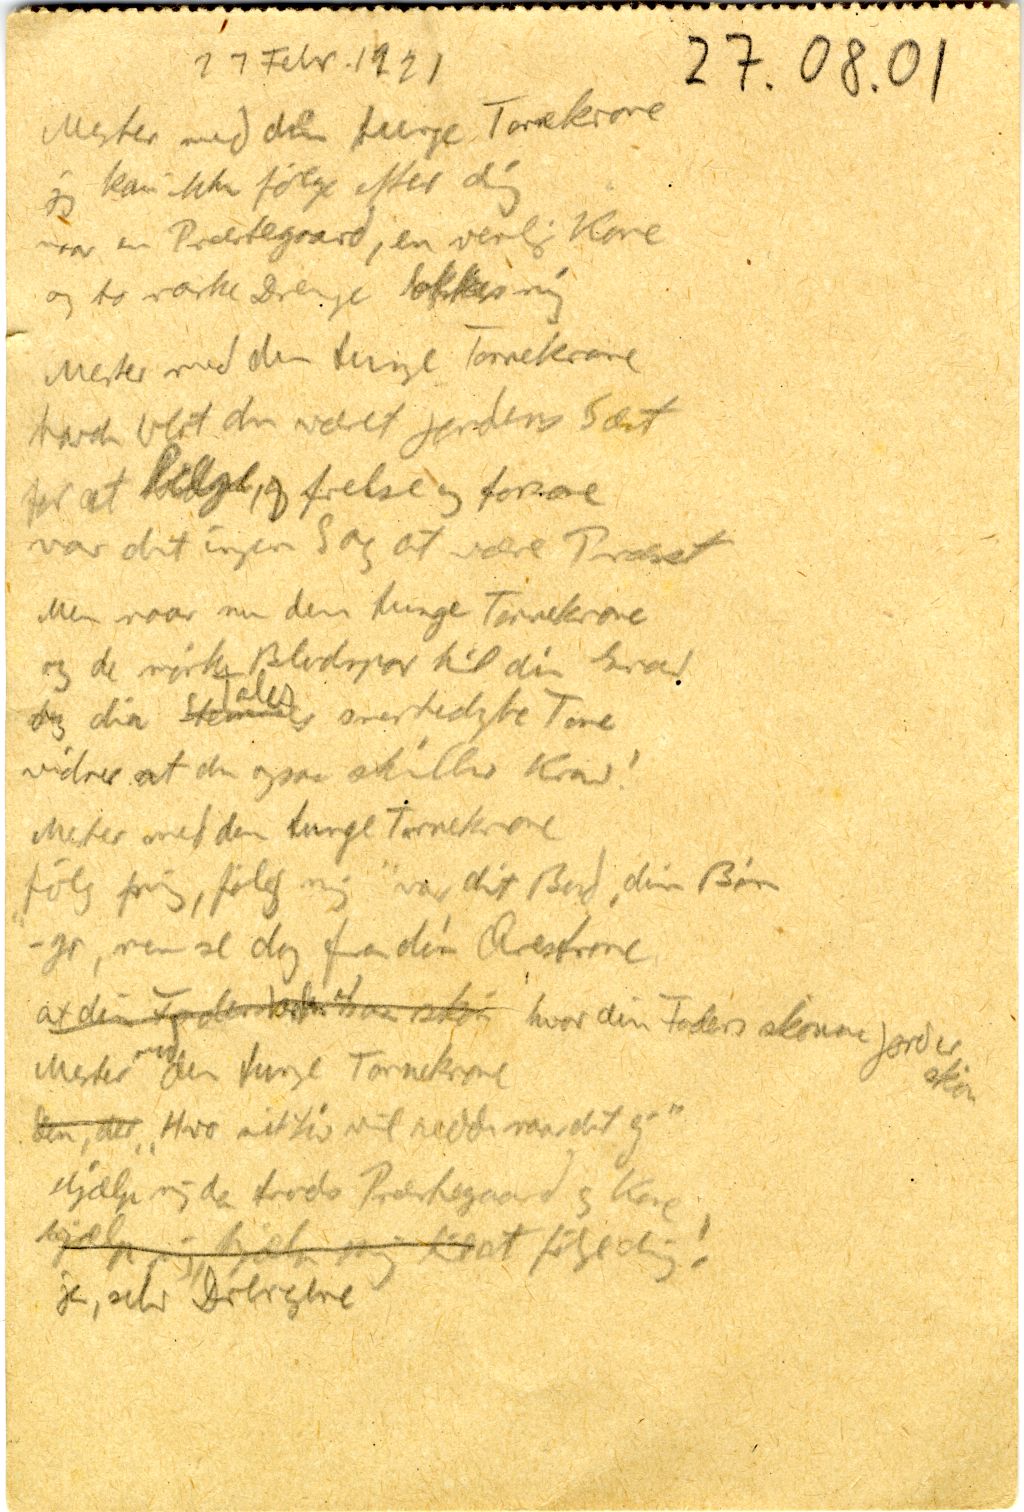 27 Febr. 1921
27.08.01
Mester med den tunge Tornekrone
jeg kan ikke følge efter dig
naar en Præstegaard, en venlig Kone
og to raske Drenge lokker mig
Mester med den tunge Tornekrone
havde blot du været Jordens Sæt
for at følge, og frelse og forsone
var det ingen Sag at være Præst
Men naar nu den tunge Tornekrone
og de mørke Blodspor til din Grav
og din Stemmes Tales smertedybe Tone
vidner at du ogsaa stiller Krav!
Mester med den tunge Tornekrone
"følg mig, følg mig" var dit Bud, din Bøn
-ja, men se dog fra din Ærestrone
at din Faders skøn hvor din Faders skønne Jord er
skøn
Mester med den tunge Tornekrone
Den, der "Hvo sit Liv vil redde
Hjælp mig da trods Præstegaard og Kone
hjælp mig, hjælp mig til at følge dig!
ja, selv Drengene